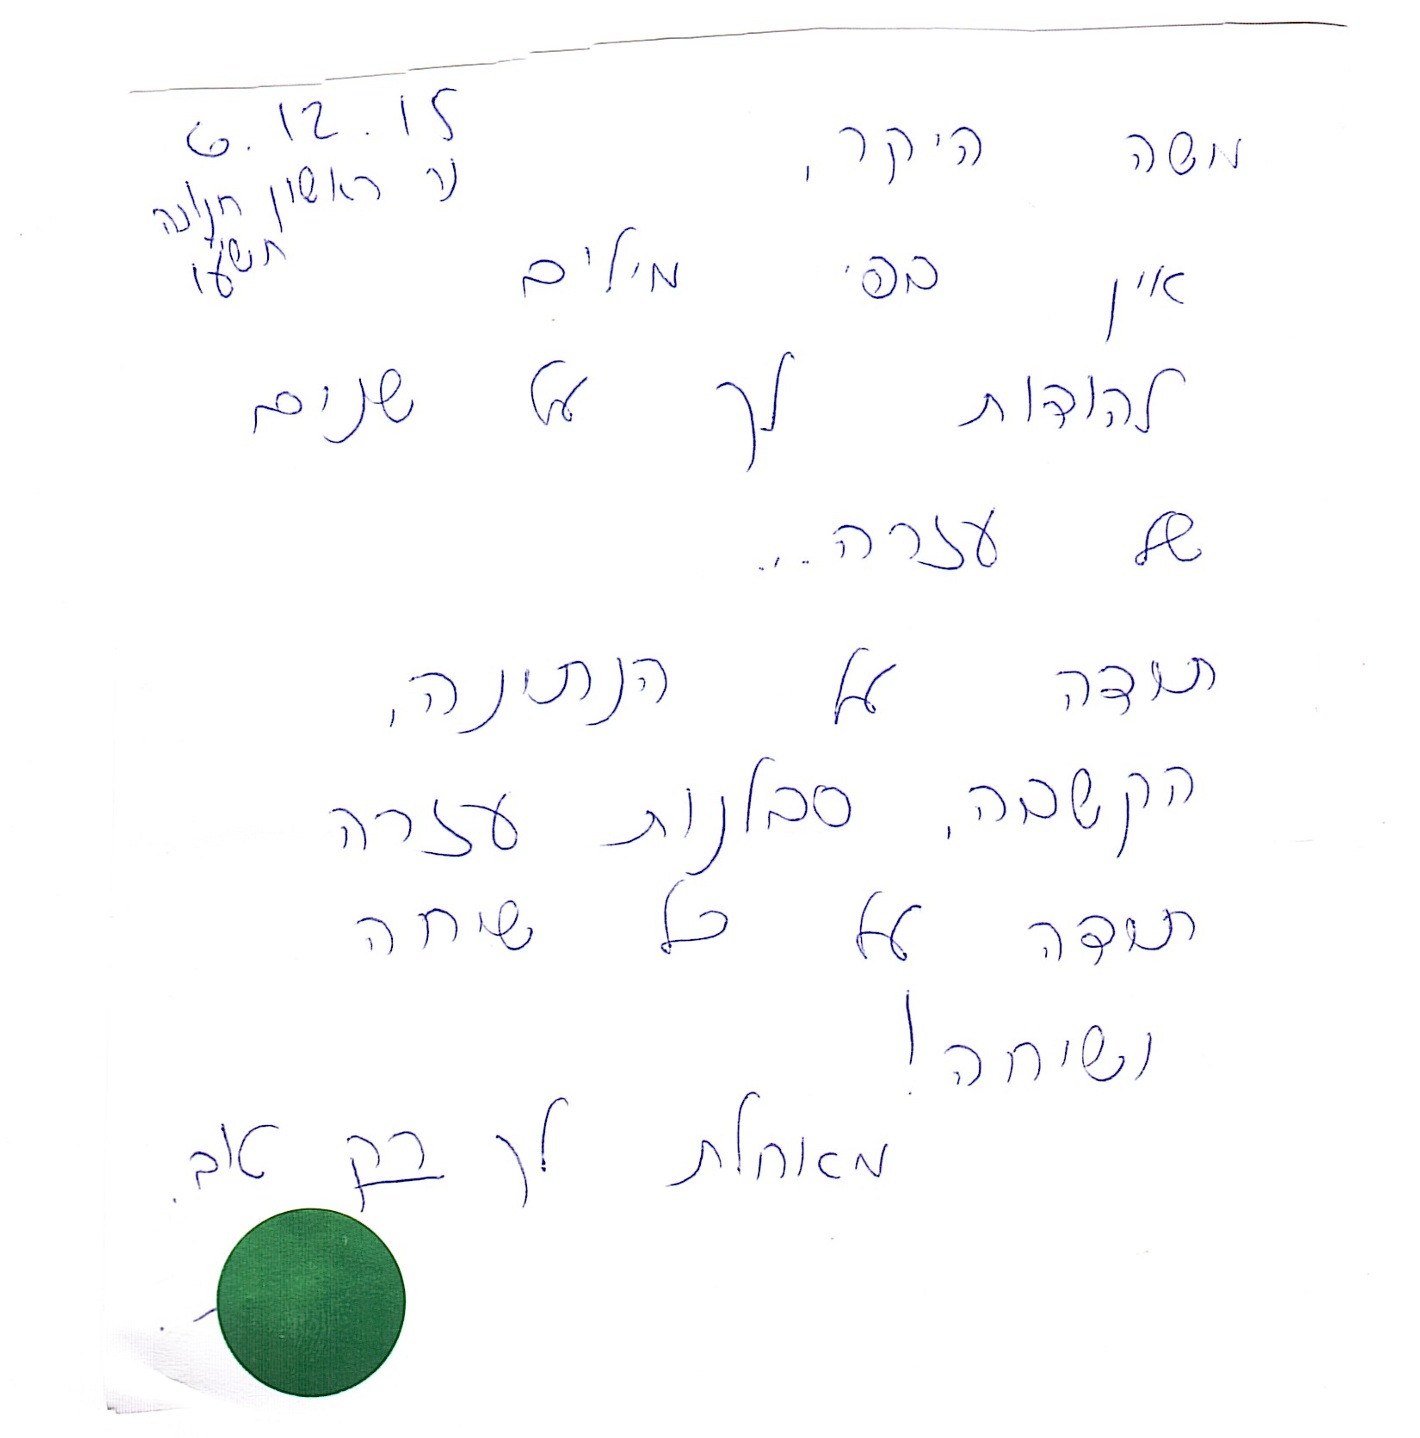 6.12.15
נר ראשון חנוכה
תשע"ו
משה היקר,
אין בפי מילים
להודות לך על שנים
של עזרה...
תודה על הנתינה,
הקשבה, סבלנות עזרה
תודה על כל שיחה
ושיחה!
מאוחלת לך רק טוב.